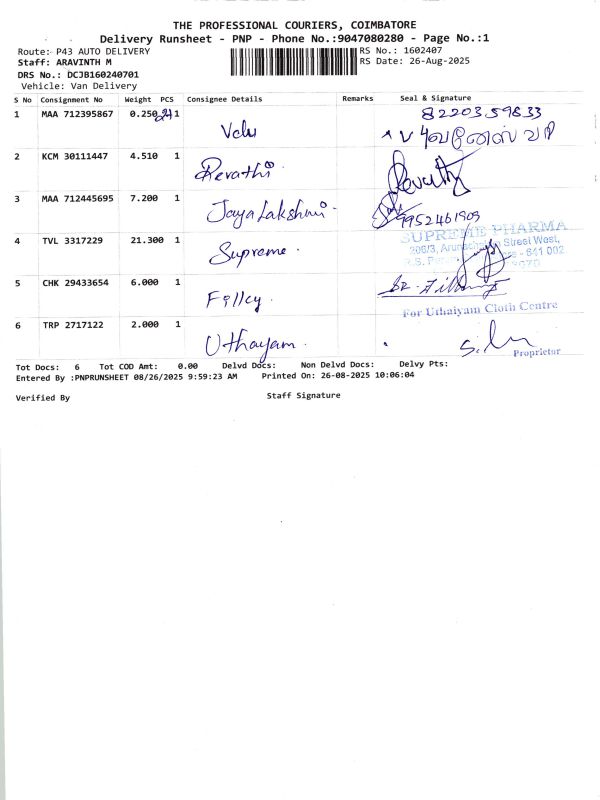 THE PROFESSIONAL COURIERS, COIMBATORE
Delivery Runsheet - PNP - Phone No.:9047080280 - Page No.:1
Route: P43 AUTO DELIVERY
RS No.: 1602407
Staff: ARAVINTH M
RS Date: 26-Aug-2025
DRS No.: DCJB160240701
Vehicle: Van Delivery
S No Consignment No Weight PCS Consignee Details Remarks Seal & Signature
1 MAA 712395867 0.250 1 Velu 8220359833
2 KCM 30111447 4.510 1 Revathi Revathy
3 MAA 712445695 7.200 1 JayaLakshmi 9952461909
4 TVL 3317229 21.300 1 Supreme.
SUPREME PHARMA
Street West,
- 641 002
5 CHK 29433654 6.000 1 Filley
For Uthaiyam Cloth Centre
6 TRP 2717122 2.000 1 Uthayam.
Proprietor
Tot Docs: 6 Tot COD Amt: 0.00 Delvd Docs: Non Delvd Docs: Delvy Pts:
Entered By :PNPRUNSHEET 08/26/2025 9:59:23 AM Printed On: 26-08-2025 10:06:04
Verified By Staff Signature